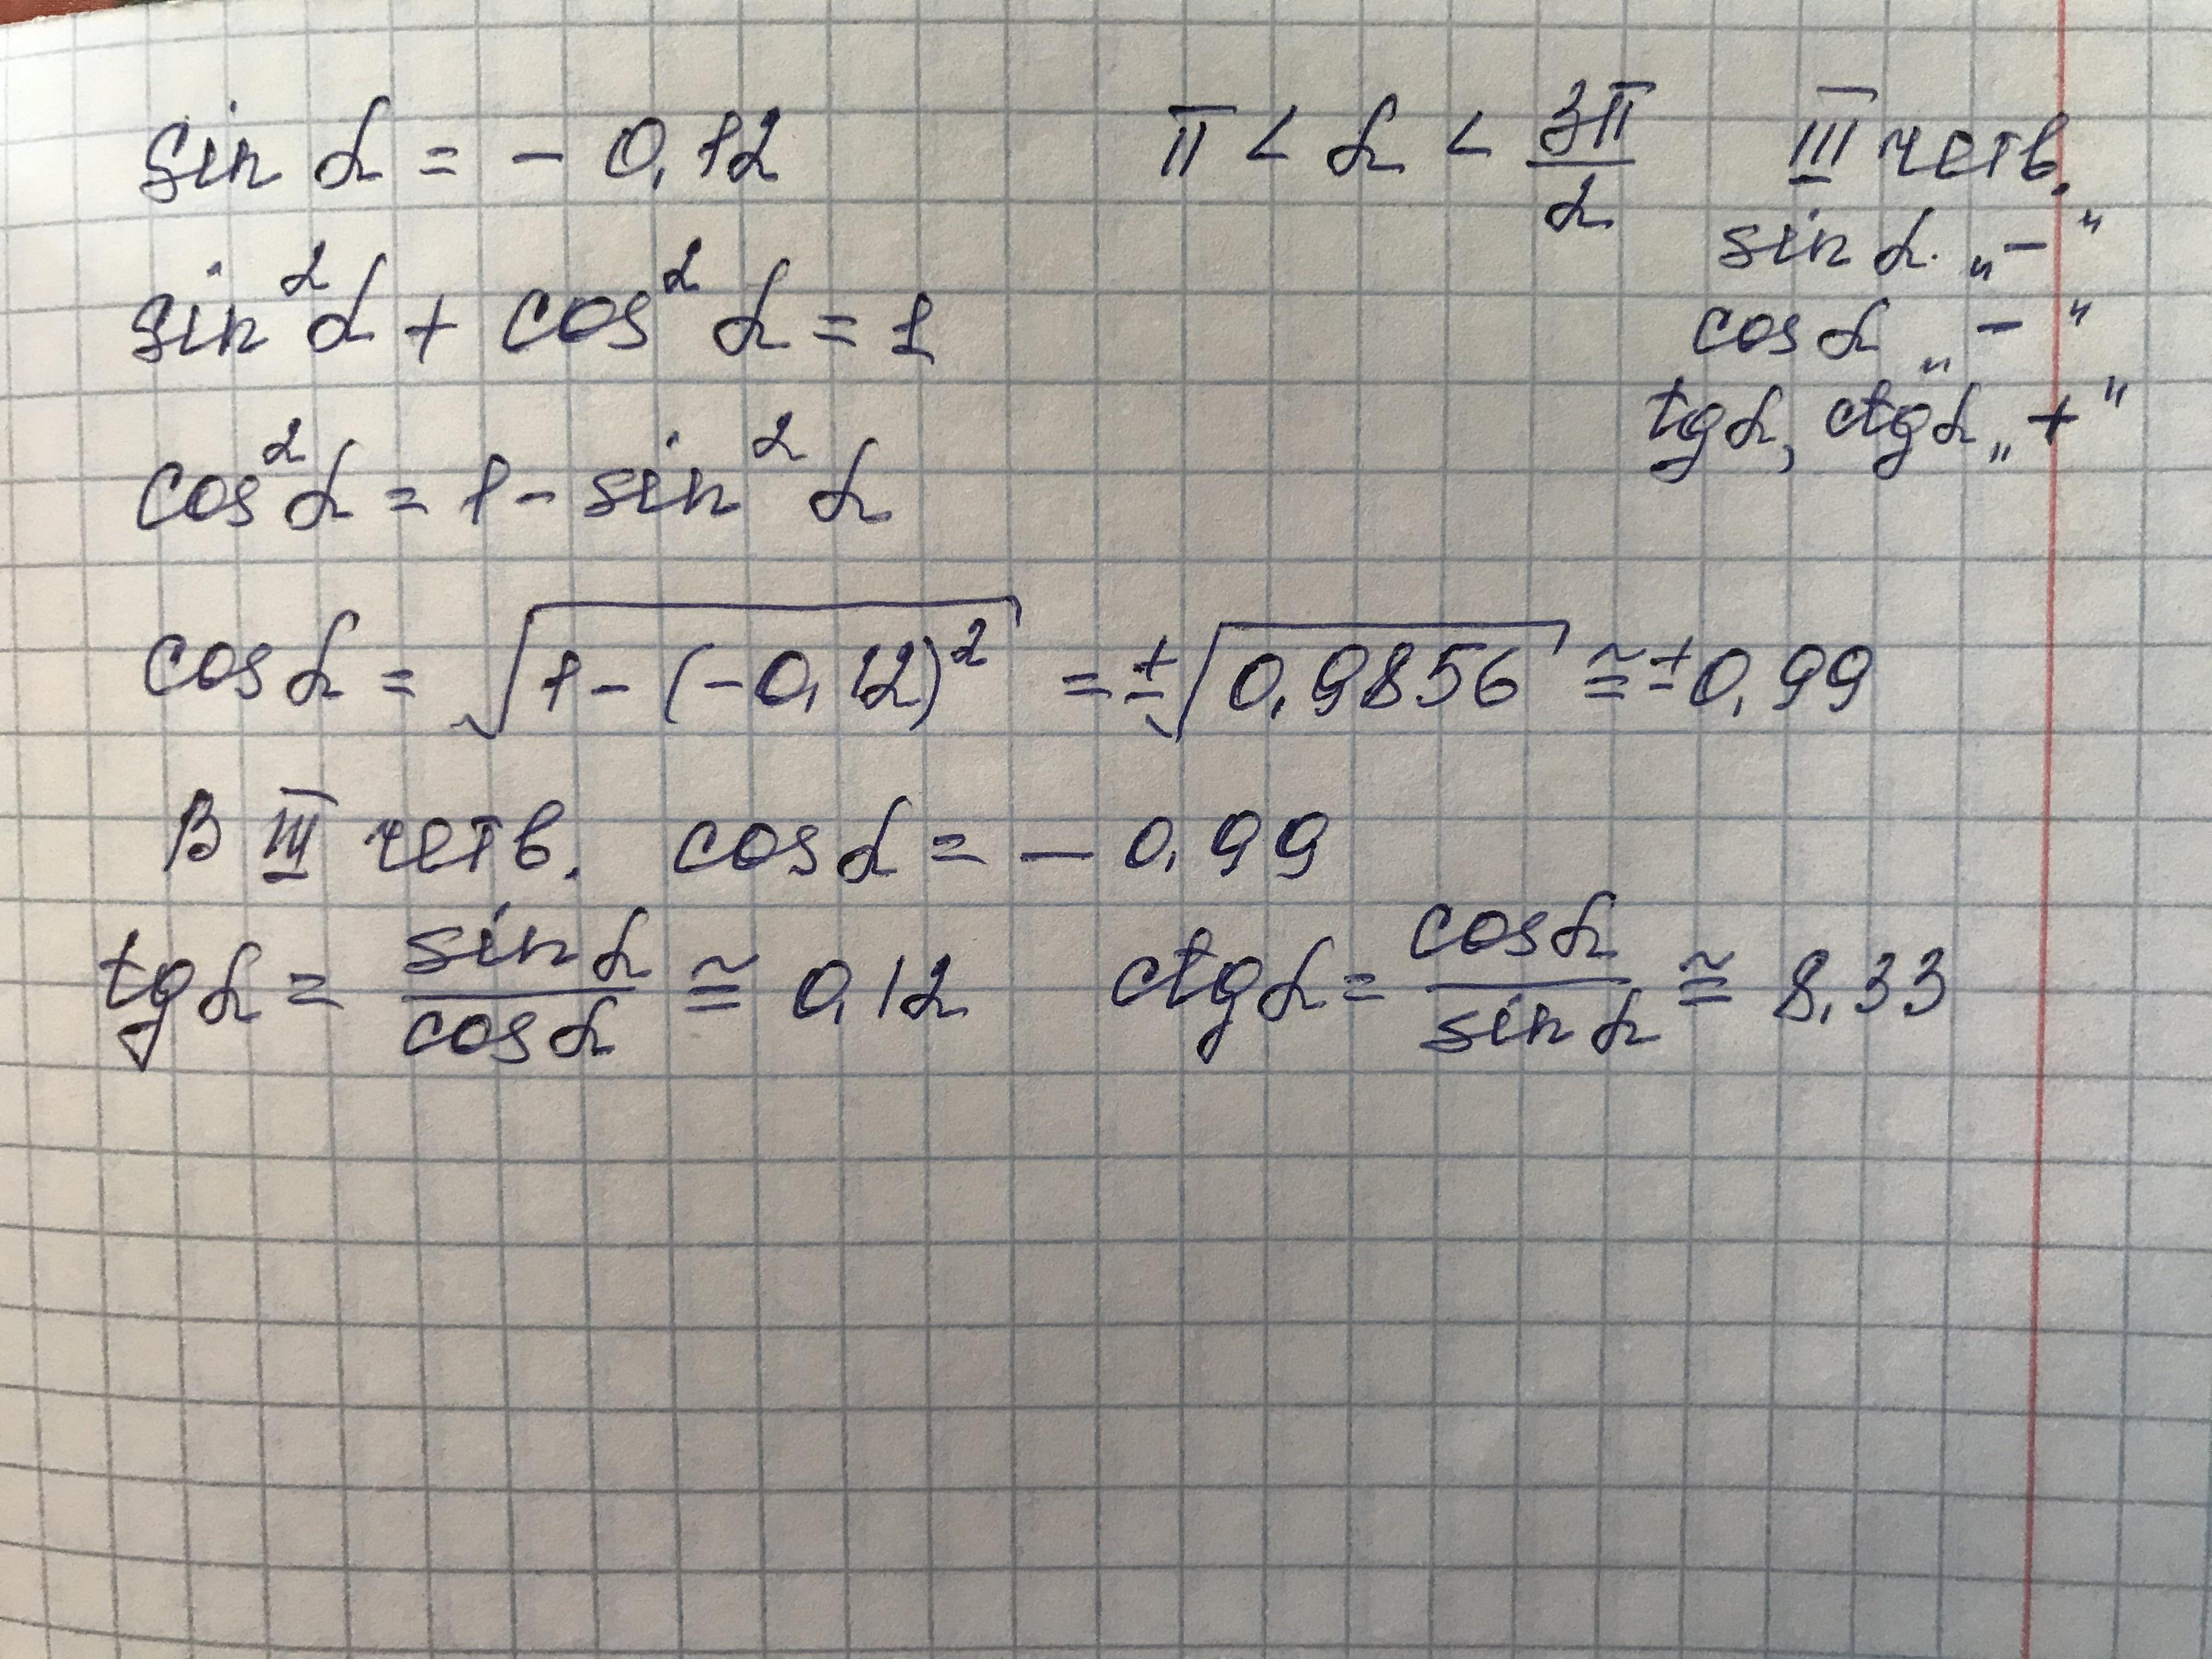 sin α = - 0,12 π < α < 3π/2 III четв.
sin α. „-"
sin²α + cos²α = 1 cos α „-"
tgα, ctgα „+"
cos²α = 1 - sin²α
cos α = √(1 - (-0,12)²) = ±√(0,9856) ≅ ±0,99
В III четв. cos α = - 0,99
tgα = sin α/cos α ≅ 0,12 ctgα = cos α/sin α ≅ 8,33